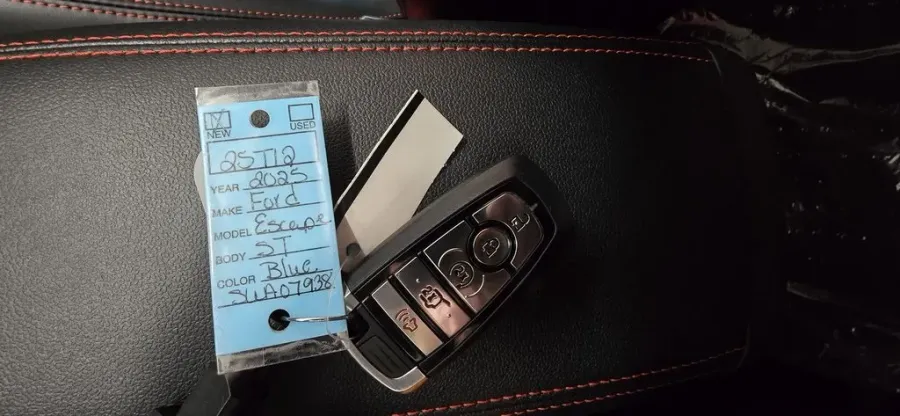 NEW USED
25T12
YEAR 2025
MAKE Ford
MODEL Escape
BODY ST
COLOR Blue
SUA07938